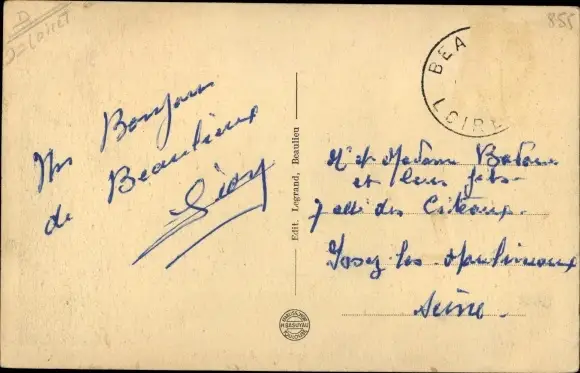 D
Loiret
855
BEA
LOIR
Un Bonjour
de Beaulieu
Edit. Legrand, Beaulieu
Mr et Madame
et leur fils
7 allé des Coteaux.
Issy les Moulineaux
Seine.